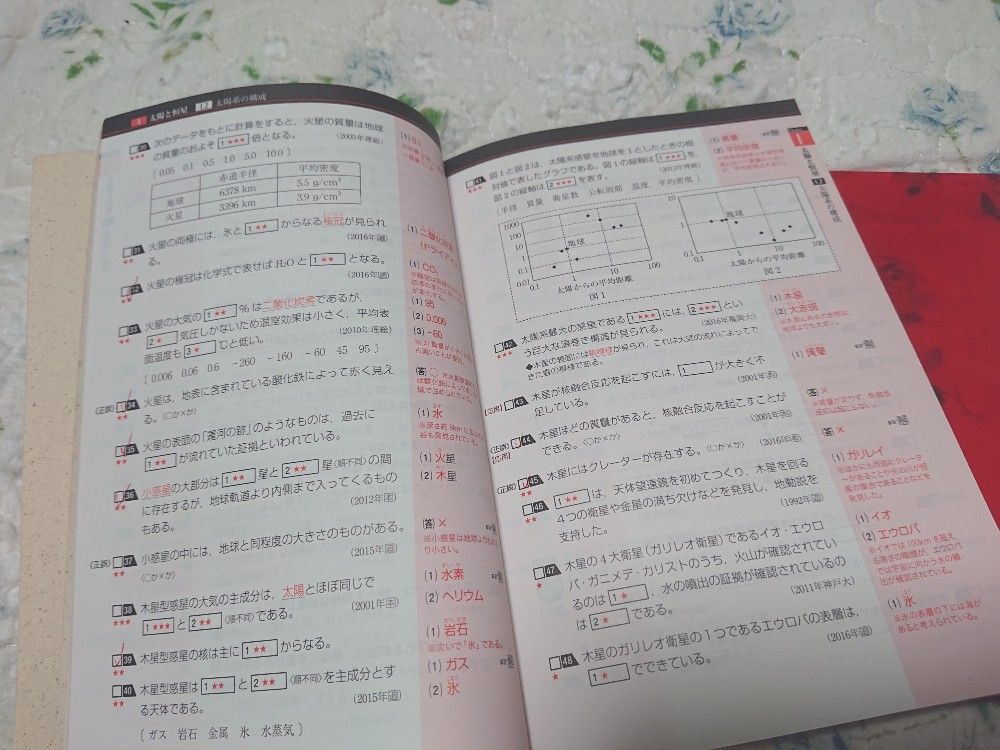 1 太陽と恒星 17 太陽系の構成
30 次のデータをもとに計算をすると，火星の質量は地球
★★★ の質量のおよそ 1★★★ 倍となる。 (2005年理総)
〔 0.05 0.1 0.5 1.0 5.0 10.0 〕
赤道半径 平均密度
地球 6378 km 5.5 g/cm³
火星 3396 km 3.9 g/cm³
31 火星の両極には，氷と 1★★ からなる極冠が見られ
★★ る。 (2016年園)
(1) 二酸化炭素
(ドライアイス)
32 火星の極冠は化学式で表せば H₂O と 1★★ となる。
★★ (2016年園)
(1) CO₂
33 火星の大気の 1★★ ％は二酸化炭素であるが，
★★ 2★ 気圧しかないため温室効果は小さく，平均表
面温度も 3★ ℃と低い。 (2010年理総)
〔 0.006 0.06 0.6 －260 －160 －60 45 95 〕
(1) 95
(2) 0.006
(3) －60
(正誤) 34 火星は，地表に含まれている酸化鉄によって赤く見え
★★ る。〈○か×か〉
(答) ○
35 火星の表面の「運河の跡」のようなものは，過去に
★★ 1★★ が流れていた証拠といわれている。
(1) 水
36 小惑星の大部分は 1★★ 星と 2★★ 星〈順不同〉の間
★★ に存在するが，地球軌道より内側まで入ってくるもの
もある。 (2012年園)
(1) 火星
(2) 木星
(正誤) 37 小惑星の中には，地球と同程度の大きさのものがある。
★★ 〈○か×か〉 (2015年園)
(答) ×
※小惑星は地球よりもかな
り小さい。
38 木星型惑星の大気の主成分は，太陽とほぼ同じで
★★ 1★★★ と 2★★ 〈順不同〉である。 (2001年園)
(1) 水素
(2) ヘリウム
39 木星型惑星の核は主に 1★★ からなる。
★★
(1) 岩石
※次いで「氷」である。
40 木星型惑星は 1★★ と 2★★ 〈順不同〉を主成分とす
★★ る天体である。 (2015年園)
〔 ガス 岩石 金属 氷 水蒸気 〕
(1) ガス
(2) 氷
41 図1と図2は，太陽系惑星を地球を1としたときの相
★★★ 対値で表したグラフである。図1の縦軸は 1★★★ を，
図2の縦軸は 2★★★ を表す。
〔半径 質量 衛星数 公転周期 温度 平均密度〕
(1) 質量
(2) 平均密度
1000
100
10
1
0.1
0.01
0.1 1 10 100
地球
太陽からの平均距離
図1
10
1
0.1
0.1 1 10 100
地球
太陽からの平均距離
図2
42 太陽系最大の惑星である 1★★★ には， 2★★★ とい
★★★ う巨大な渦巻き構造が見られる。 (2016年福岡大)
(1) 木星
(2) 大赤斑
(応用) 43 木星が核融合反応を起こすには， 1 が大きく不
足している。 (2001年園)
(1) 質量
(正誤) 44 木星ほどの質量があると，核融合反応を起こすことが
(応用) できる。〈○か×か〉 (2001年園)
(答) ×
(正誤) 45 木星にはクレーターが存在する。〈○か×か〉 (2016年園)
★★
(答) ×
46 1★★ は，天体望遠鏡を初めてつくり，木星を回る
★★ 4つの衛星や金星の満ち欠けなどを発見し，地動説を
支持した。 (1992年園)
(1) ガリレイ
47 木星の4大衛星(ガリレオ衛星)であるイオ・エウロ
★ パ・ガニメデ・カリストのうち，火山が確認されてい
るのは 1★ ，水の噴出の証拠が確認されているの
は 2★ である。 (2011年神戸大)
(1) イオ
(2) エウロパ
48 木星のガリレオ衛星の1つであるエウロパの表層は，
★ 1★ でできている。 (2016年園)
(1) 氷
※氷の表層の下には海が
あると考えられている。